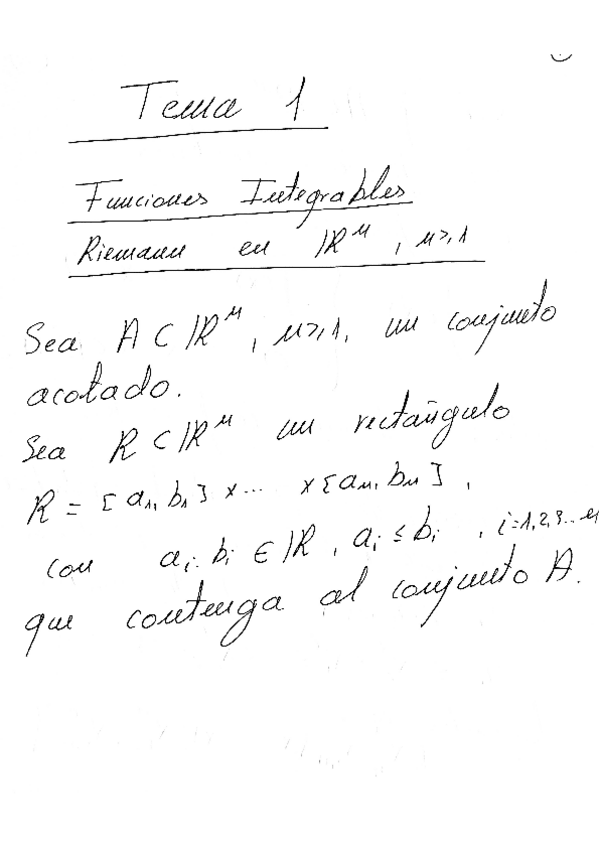 Tema 1
Funciones Integrables
Riemann en ℝⁿ, n≥1
Sea A ⊂ ℝⁿ, n≥1, un conjunto
acotado.
Sea R ⊂ ℝⁿ un rectángulo
R = [a₁, b₁] × ... × [aₙ, bₙ],
con aᵢ, bᵢ ∈ ℝ, aᵢ ≤ bᵢ, i=1,2,3...n
que contenga al conjunto A.